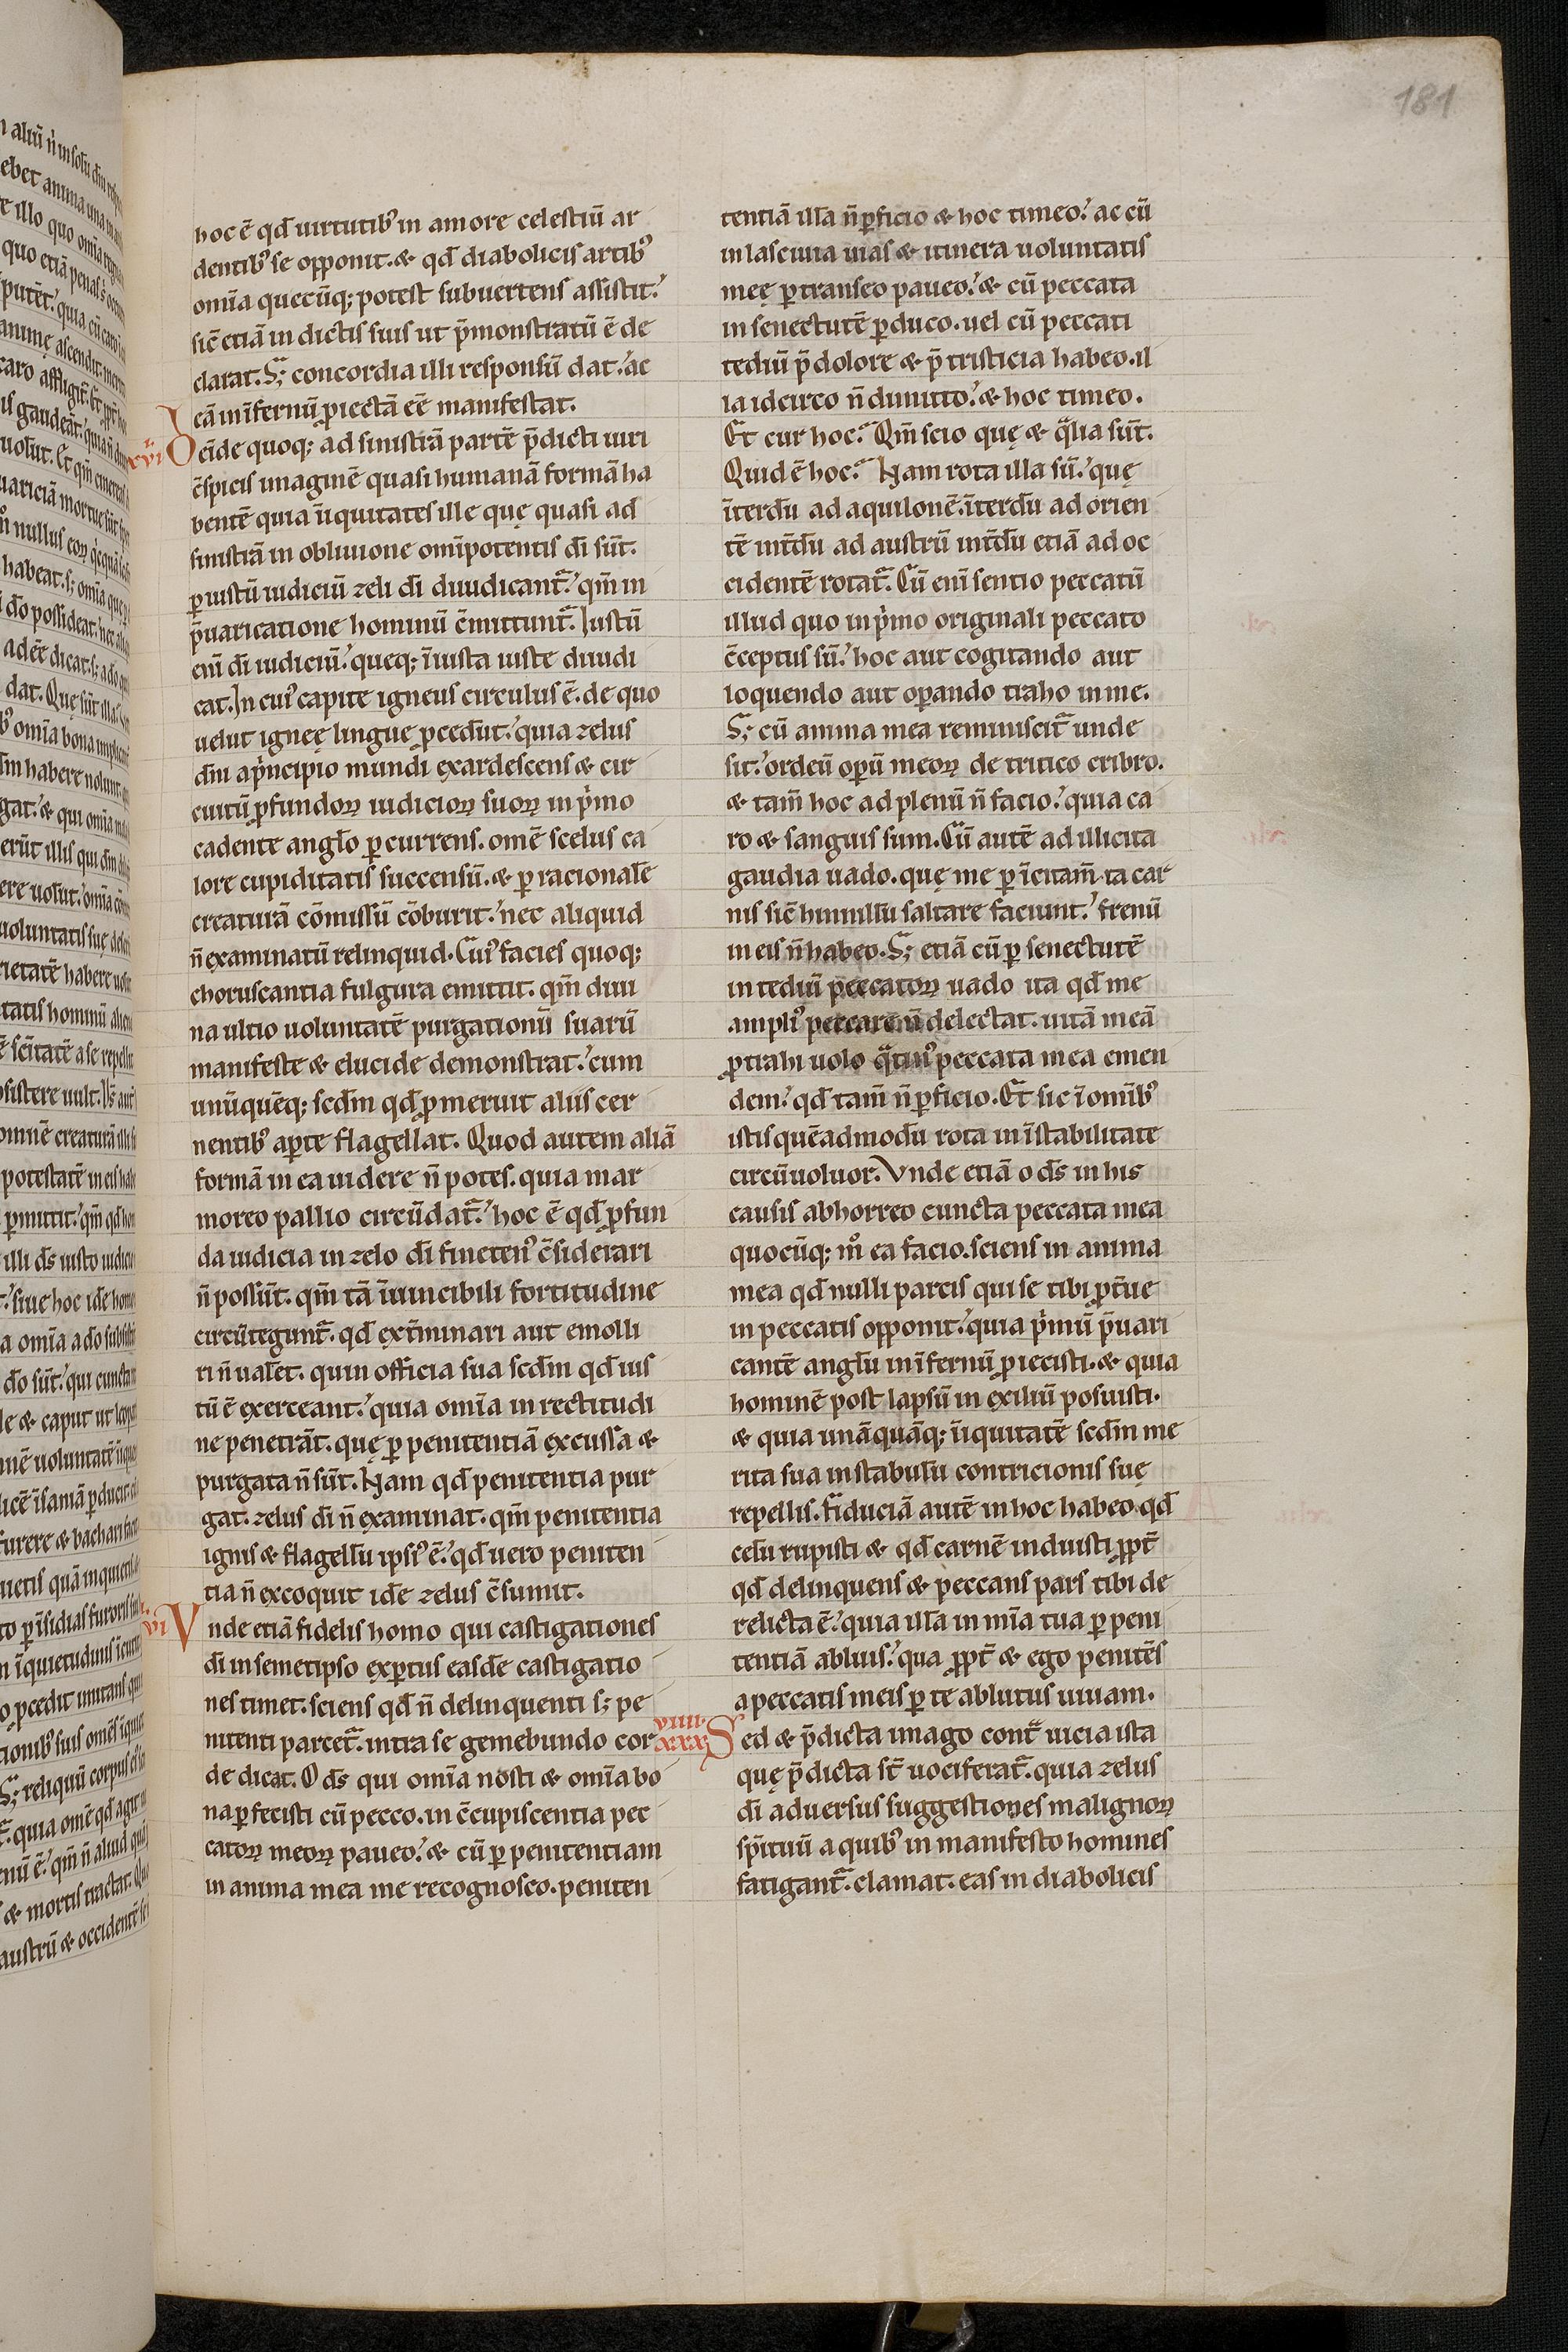 181
hoc ē qd̄ uirtutib᷒ in amore celestiū ar
dentib᷒ se opponit. & qd̄ diabolicis artib᷒
om̄ia quecūq; potest subuertens assistit.
sic̄ etiā in dictis suis ut p̄monstratū ē de
clarat. S; concordia illi responsū dat. ac
eā in īfernū ꝓiectā eē manifestat.
Deīde quoq; ad sinistrā partē p̄dicti uiri
c̄spicis imaginē quasi humanā formā ha
bentē quia īiquitates ille quę quasi ad
sinistrā in obliuione om̄ipotentis dī sūt.
ꝑ iustū iudiciū zeli dī diiudicant᷑. qm̄ in
p̄uaricatione hominū c̄mittunt᷑. Iustū
enī dī iudiciū. queq; īiusta iuste diiudi
cat. In cui᷒ capite igneus circulus ē. de quo
uelut igneę lingue ꝓcedūt. quia zelus
dn̄i a p̍ncipio mundi exardescens & cir
cuitū ꝓfundoꝝ iudicioꝝ suoꝝ in p̍mo
cadente angl̄o ꝑcurrens. om̄e scelus ca
lore cupiditatis succensū. & ꝑ racional̄e
creaturā cōmissū cōburit. nec aliquid
n̄ examinatū relinquid. Cui᷒ facies quoq;
choruscantia fulgura emittit. qm̄ diui
na ultio uoluntatē purgationū suarū
manifeste & elucide demonstrat. cum
unūquēq; scd̄m qd̄ ꝓmeruit aliis cer
nentib᷒ aꝑte flagellat. Quod autem aliā
formā in ea uidere n̄ potes. quia mar
moreo pallio circūdat᷑. hoc ē qd̄ ꝓfun
da iudicia in zelo dī fineten᷒ c̄siderari
n̄ possūt. qm̄ tā īuincibili fortitudine
circūtegunt᷑. qd̄ ext̄minari aut emolli
ri n̄ ualēt. quin officia sua scd̄m qd̄ ius
tū ē exerceant. quia om̄ia in rectitudi
ne penetrāt. quę ꝑ penitentiā excussa &
purgata n̄ sūt. Nam qd̄ penitentia pur
gat. zelus dī n̄ examinat. qm̄ penitentia
ignis & flagellū ipsi᷒ ē. qd̄ uero peniten
tia n̄ excoquit idē zelus c̄sumit.
Vnde etiā fidelis homo qui castigationes
dī in semetipso exꝑtus easdē castigatio
nes timet. sciens qd̄ n̄ delinquenti s; pe
nitenti parcet᷑. intra se gemebundo cor
de dicat. O ds̄ qui om̄ia nosti & om̄ia bo
na ꝑfecisti cū pecco. in c̄cupiscentia pec
catoꝝ meoꝝ paueo. & cū ꝑ penitentiam
in anima mea me recognosco. peniten
tentiā illā n̄ ꝑficio & hoc timeo. ac cū
in lasciuia uias & itinera uoluntatis
meę ꝑtranseo paueo. & cū peccata
in senectutē ꝑduco. uel cū peccati
tediū p̄ dolore & p̄ tristicia habeo. il
la idcirco n̄ dimitto. & hoc timeo.
Et cur hoc? Qm̄ scio quę & q̄lia sūt.
Quid ē hoc? Nam rota illa sū. quę
īterdū ad aquilonē. īterdū ad orien
tē int̄dū ad austrū int̄dū etiā ad oc
cidentē rotat᷑. Cū enī sentio peccatū
illud quo in p̍mo originali peccato
c̄ceptus sū. hoc aut cogitando aut
loquendo aut oꝑando traho in me.
S; cū anima mea reminiscit᷑ unde
sit. ordeū oꝑū meoꝝ de tritico cribro.
& tam̄ hoc ad plenū n̄ facio. quia ca
ro & sanguis sum. Cū autē ad illicita
gaudia uado. quę me ꝑ īcitam̄ta car
nis sic̄ hinnulū saltare faciunt. frenū
in eis n̄ habeo. S; etiā cū ꝑ senectutē
in tediū peccatoꝝ uado ita qd̄ me
ampli᷒ peccare n̄ delectat. uitā meā
ꝓtrahi uolo q̄tin᷒ peccata mea emen
dem. qd̄ tam̄ n̄ ꝑficio. Et sic ī om̄ib᷒
istis quēadmodū rota in īstabilitate
circūuoluor. Vnde etiā o ds̄ in his
causis abhorreo cuncta peccata mea
quocūq; m̊ ea facio. sciens in anima
mea qd̄ nulli parcis qui se tibi ꝓt̄ue
in peccatis opponit. quia p̍mū p̄uari
cantē angl̄m in īfernū ꝓiecisti. & quia
hominē post lapsū in exiliū posuisti.
& quia unāquāq; īiquitatē scd̄m me
rita sua in stabulū contricionis suę
repellis. Fiduciā autē in hoc habeo. qd̄
celū rupisti & qd̄ carnē induisti ꝓpt̄
qd̄ delinquens & peccans pars tibi de
relicta ē. quia illā in mīa tua ꝑ peni
tentiā abluis. qua ꝓpt̄ & ego penitēs
a peccatis meis ꝑ te ablutus uiuam.
viiii.
xxx Sed & p̄dicta imago cont᷑ uicia ista
quę p̄dicta st̄ uociferat᷑. quia zelus
dī aduersus suggestiones malignoꝝ
sp̄ituū a quib᷒ in manifesto homines
fatigant᷑. clamat. eas in diabolicis